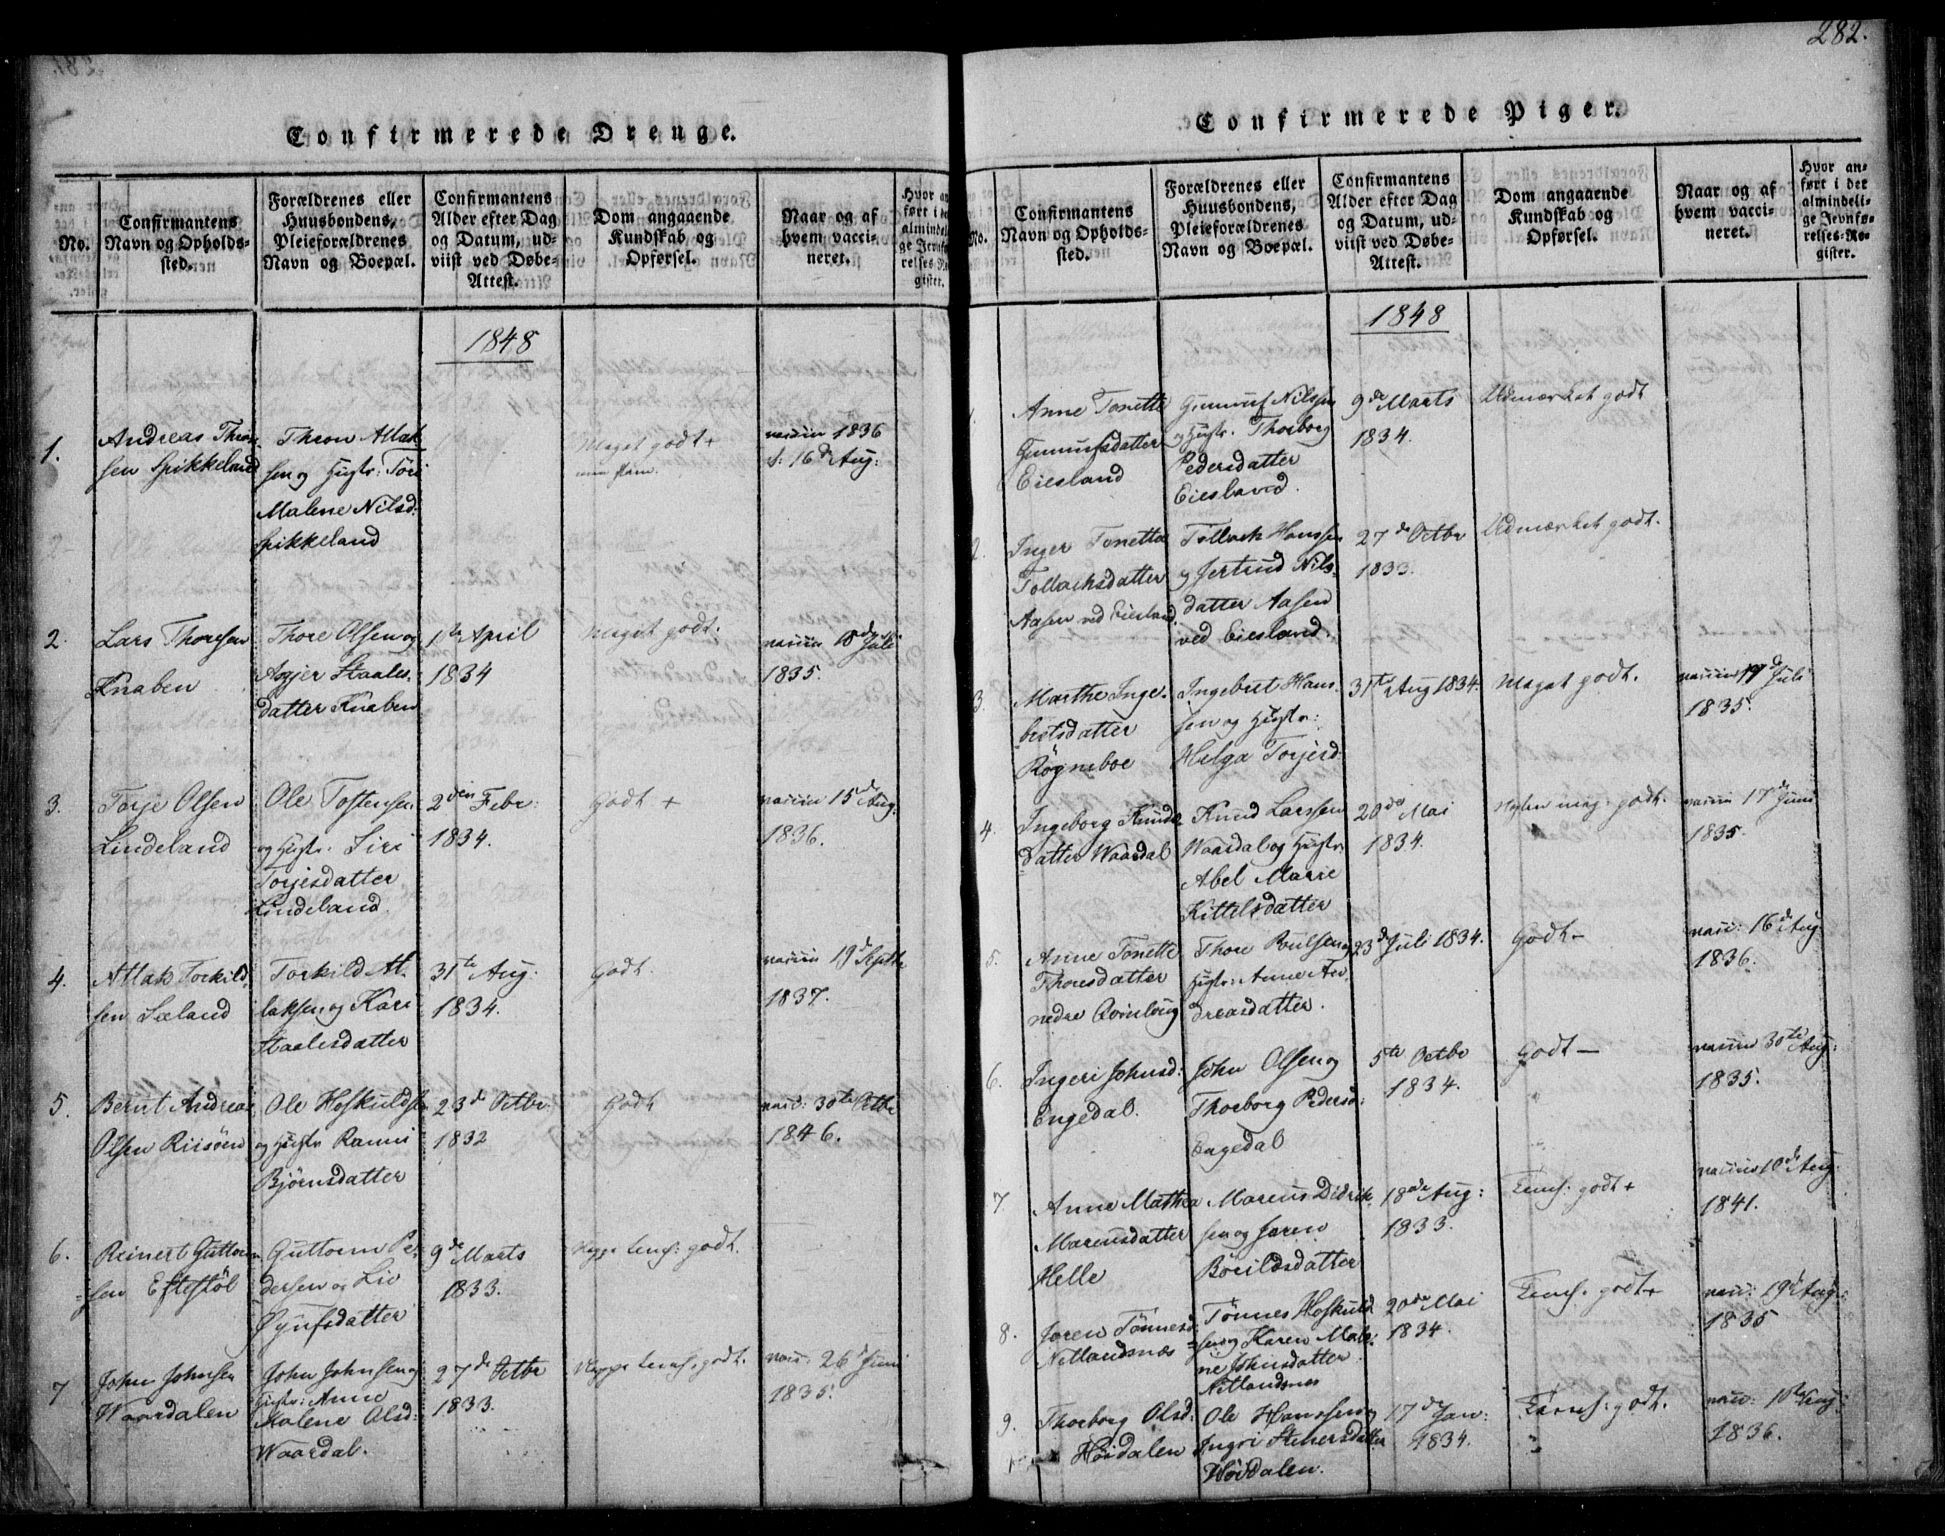 Confirmerede Drenge.
No.
Confirmantens
Navn og Opholds-
sted.
Forældrenes eller
Huusbondens,
Pleieforældrenes
Navn og Boepæl.
Confirmantens
Alder efter Dag
og Datum, ud-
viist ved Døbe-
Attest.
Dom angaaende
Kundskab og
Opførsel.
Naar og af
hvem vacci-
neret.
1848
1.
Andreas Thron-
sen Spikkeland
Thron Atlak
sen og Hustr: Töri
Malene Nilsd:
Spikkeland
Meget godt +
vaccin 1836
d: 16 d Aug:
2.
Lars Thoresen
Knaben
Thore Olsen og
Asgjer Staales-
datter Knaben
1ste April
1834
Meget godt.
vaccin 18 d Juli
1835.
3.
Torje Olsen
Lindeland
Ole Tostensen
og Hustr. Siri
Torjesdatter
Lindeland.
2den Febr:
1834.
Godt +
vaccin 15 d Aug.
1836.
4.
Atlak Torkild-
sen Sæland
Torkild At-
laksen og Kari
Staalesdatter
31te Aug:
1834.
Godt.
vaccin 19 d Septbr
1837.
5.
Bernt Andreas
Olsen Risöen
Ole Hoskuldsen
og Hustr Ranni
Björnsdatter
23 de Octbr.
1832
Godt
vacc: 30te Octbr
1846.
6.
Reinert Guttorm-
sen Eftestöl
Guttorm Pe-
dersen og Liv
Gynfsdatter
9 de Marts
1833.
temf: godt.
7
John Johnsen
Waardalen
John Johnsen og
Hustr: Anne
Malene Olsd:
Waardal.
27 de Octbr
1833.
temf: godt.
vacc: 26 d Juni
1835.
282.
Confirmerede Piger.
No.
Confirmantens
Navn og Opholds-
sted.
Forældrenes eller
Huusbondens,
Pleieforældrenes
Navn og Boepæl.
Confirmantens
Alder efter Dag
og Datum, ud-
viist ved Døbe-
Attest.
Dom angaaende
Kundskab og
Opførsel.
Naar og af
hvem vacci-
neret.
Hvor an-
ført i det
almindeli-
ge Jevnfø-
relses-Re-
gister.
1848
Anne Tonette
Gunnufsdatter
Eiesland
Gunnuf Nilssen
og Hustr. Thorborg
Pedersdatter
Eiesland.
9 de Marts
1834.
Udmærket godt
2.
Inger Tonette
Tollachsdatter
Aasen ved Eiesland.
Tollach Hanssen
og Jertrud Nils-
datter Aasen
ved Eiesland.
27 de Octbr
1833.
Udmærket godt.
3.
Marthe Inge-
bretsdatter
Rögneboe
Ingebret Hans-
sen og Hustr:
Helga Torjesd:
31te Aug 1834.
Meget godt.
vaccin 17 d Juli
1835.
4.
Ingeborg Knuds-
datter Waardal
Knud Larssen
Waardal og Hustr:
Abel Marie
Kittelsdatter
20 de Mai
1834.
meg: godt.
vaccin 17 d Juni
1835.
5.
Anne Tonette
Thoresdatter
nedre
Thore Poulsen og
Hustr: Anne An-
dreasdatter.
23 d Juli 1834.
Godt -
vacc: 16 d Aug
1836.
6.
Ingeri Johnsd:
Engedal.
John Olsen og
Thorborg Pedersd:
Engedal
5te Octbr
1834.
Godt -
vaccin 30te Aug:
1835.
7.
Anne Mathea
Marcusdatter
Helle
Marcus Didrik-
sen og Joren
Börildsdatter
18 de Aug:
1833.
Temf: godt +
vaccin 10 de Aug.
1841.
8.
Joren Tönnesd:
Netlandsnæs
Tönnes Hoskuld
sen og Karen Male-
ne Johnsdatter
Netlandsnæs
20 de Mai
1834.
Temf. godt +
vacc: 19 d Aug:
1835
9.
Thorborg Olsd:
Höidalen
Ole Hanssen og
Ingri Steenersdatter
Höidalen.
17 de Jan:
1834.
Temf: godt.
vacc: Aug:
1836.